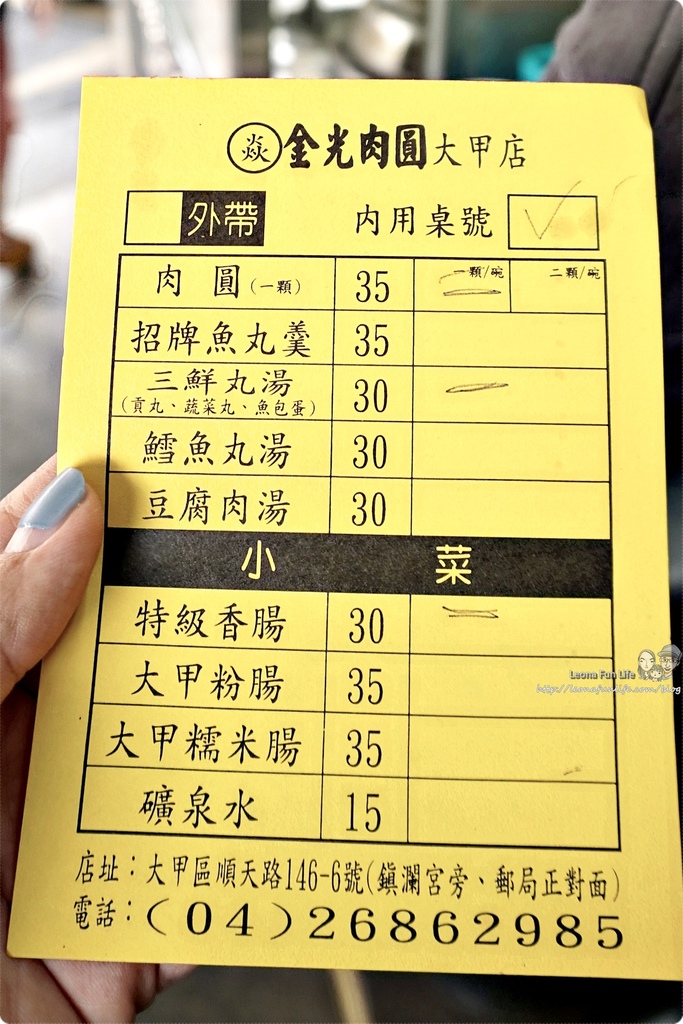 焱金光肉圓大甲店
外帶 內用桌號
肉圓(一顆) 35 一顆/碗 二顆/碗
招牌魚丸羹 35
三鮮丸湯 30
(貢丸、蔬菜丸、魚包蛋)
鱈魚丸湯 30
豆腐肉湯 30
小菜
特級香腸 30
大甲粉腸 35
大甲糯米腸 35
礦泉水 15
店址：大甲區順天路146-6號(鎮瀾宮旁、郵局正對面)
電話：(04)26862985
Leona Fun Life
http://leonafunlife.com/blog